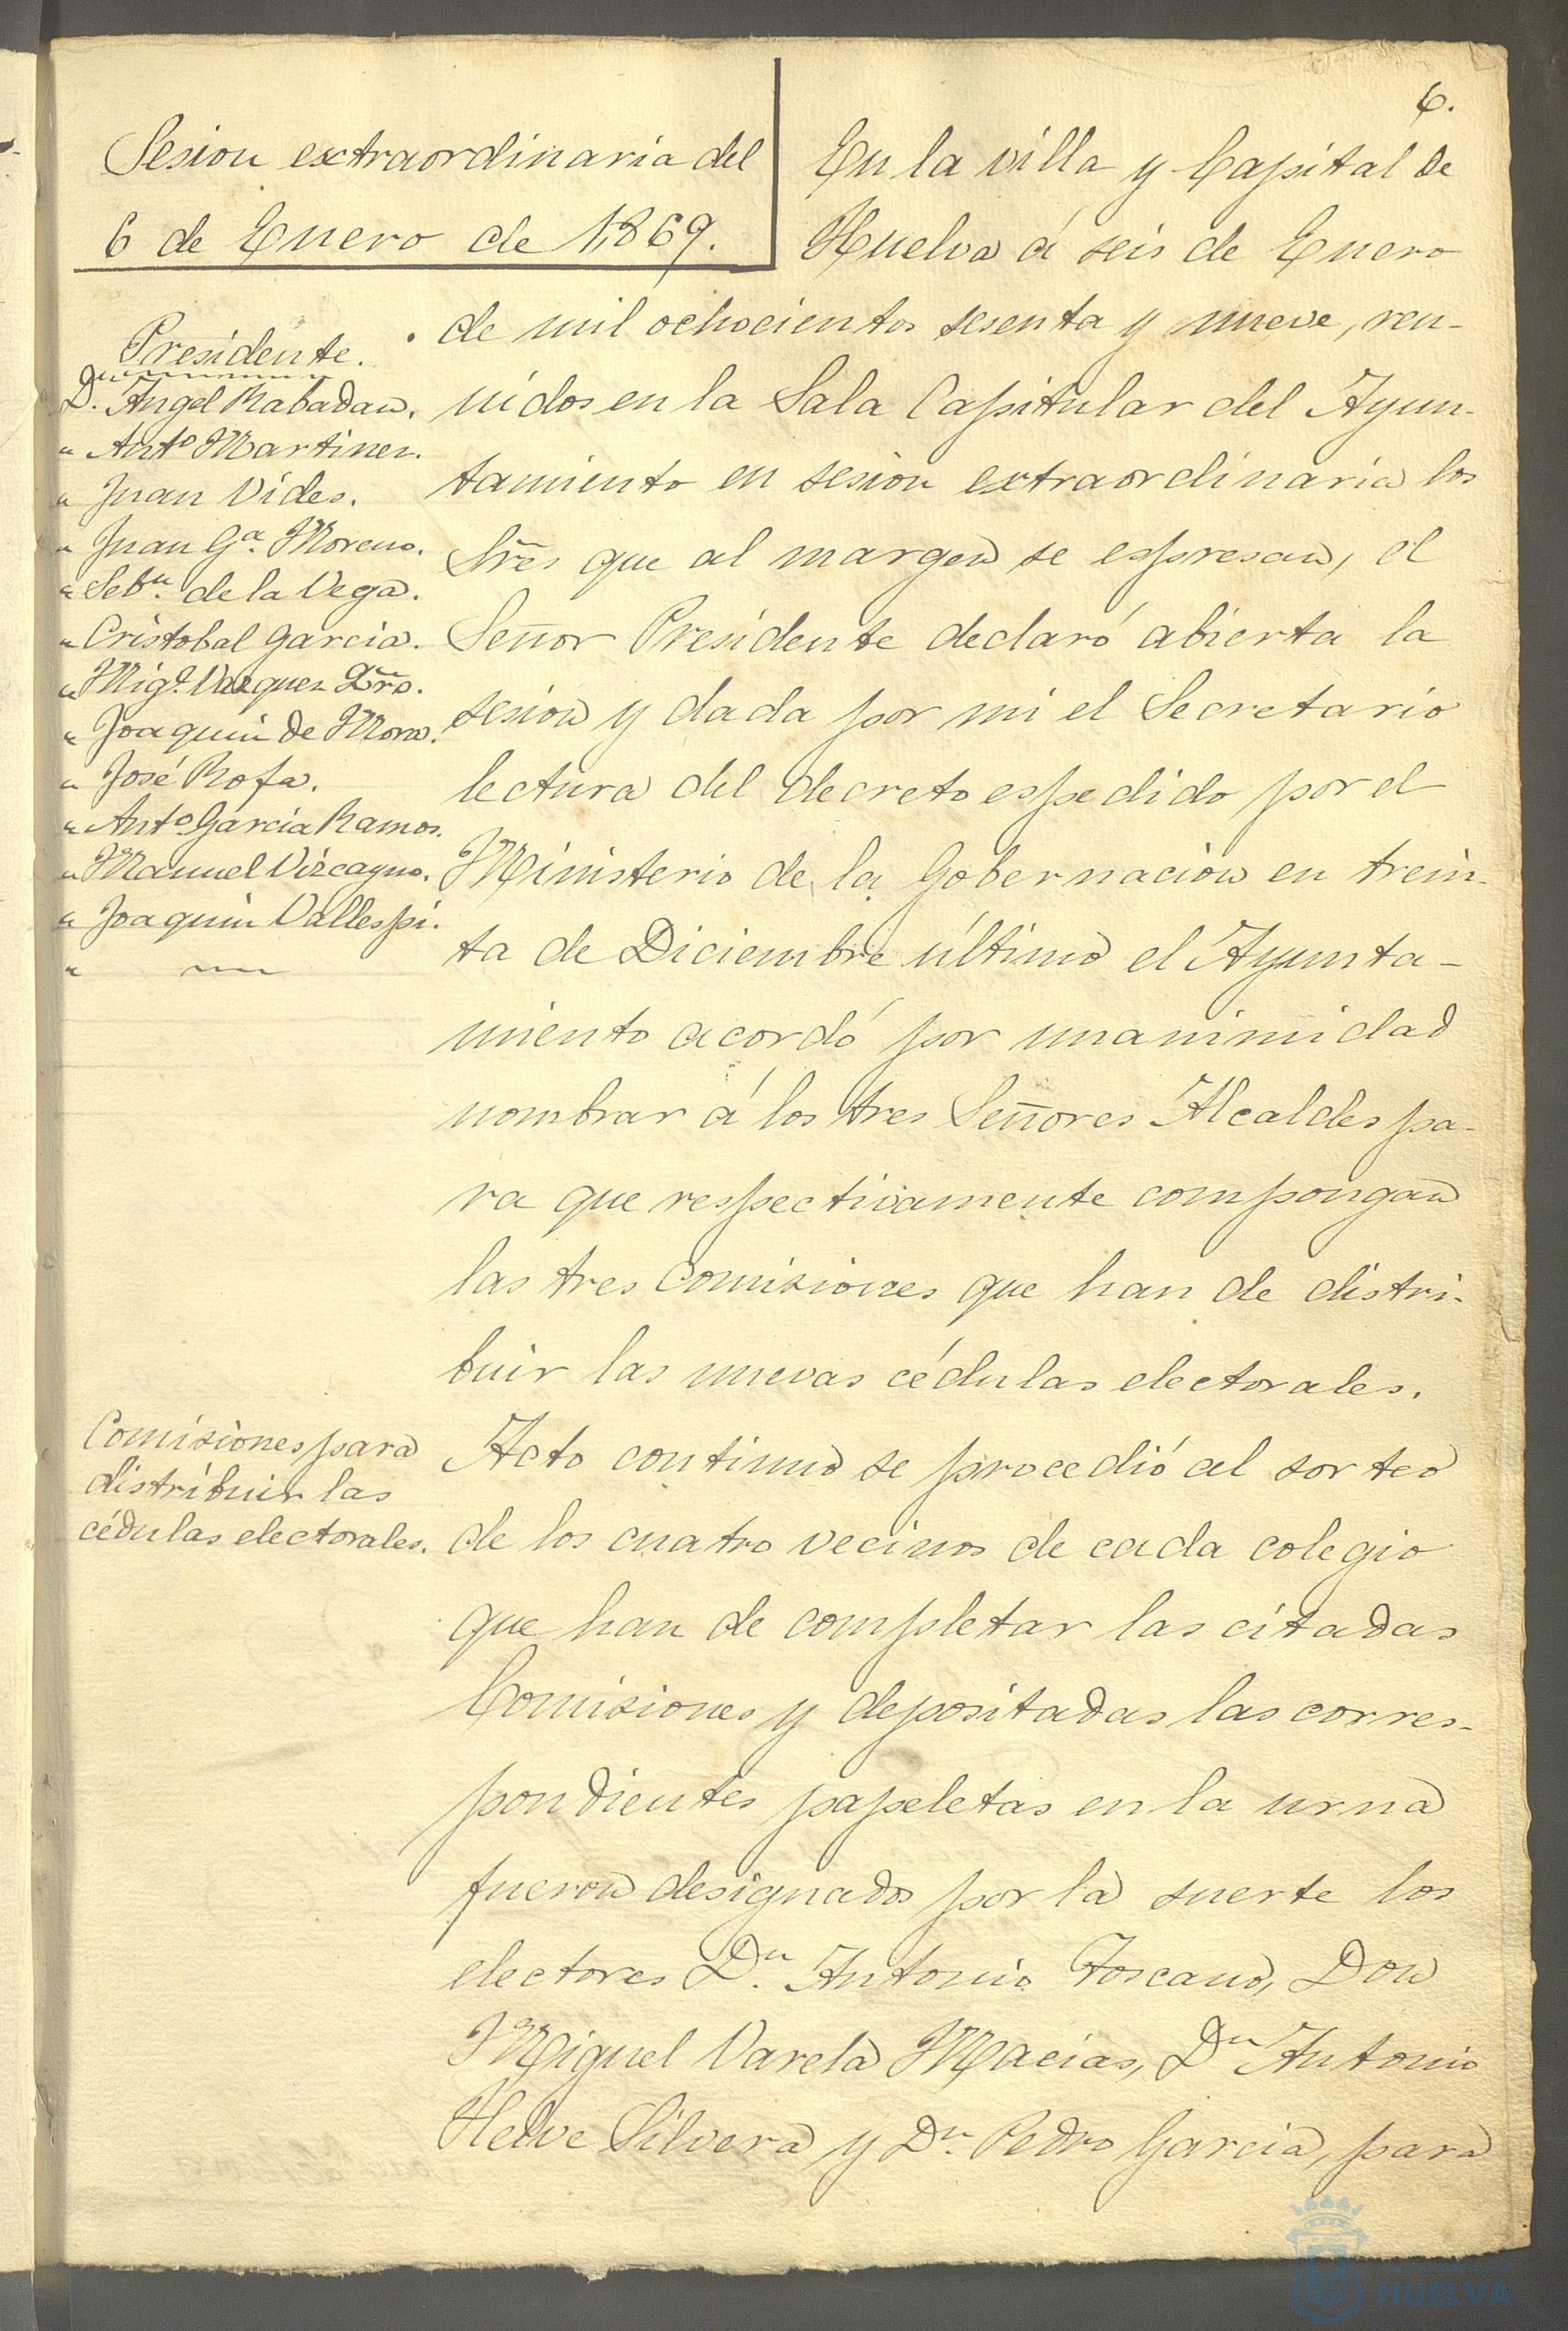 6.
Sesion extraordinaria del
6 de Enero de 1,869.
Presidente.
Dn. Angel Rabadan.
" Anto Martinez.
" Juan Vides.
" Juan Ga. Moreno.
" Sebn. de la Vega.
" Cristobal Garcia.
" Migl. Vazquez
" Joaquin de Mora.
" José Rofa.
" Anto Garcia Ramos.
" Manuel Vizcayno.
" Joaquin Vallespi.
"
Comisiones para
distribuir las
cédulas electorales.
En la villa y Capital de
Huelva á seis de Enero
de mil ochocientos sesenta y nueve, reu-
nidos en la Sala Capitular del Ayun-
tamiento en sesion extraordinaria los
Sres que al margen se espresan, el
Señor Presidente declaró abierta la
sesion y dada por mi el Secretario
lectura del decreto espedido por el
Ministerio de la Gobernacion en trein-
ta de Diciembre último el Ayunta-
miento acordó por unanimidad
nombrar á los tres Señores Alcaldes pa-
ra que respectivamente compongan
las tres Comisiones que han de distri-
buir las nuevas cédulas electorales.
Acto continuo se procedió al sorteo
de los cuatro vecinos de cada colegio
que han de completar las citadas
Comisiones y depositadas las corres-
pondientes papeletas en la urna
fueron designados por la suerte los
electores Dn. Antonio Toscano, Don
Miguel Varela Macias, Dn Antonio
Silvera y Dn. Pedro Garcia, para
HUELVA